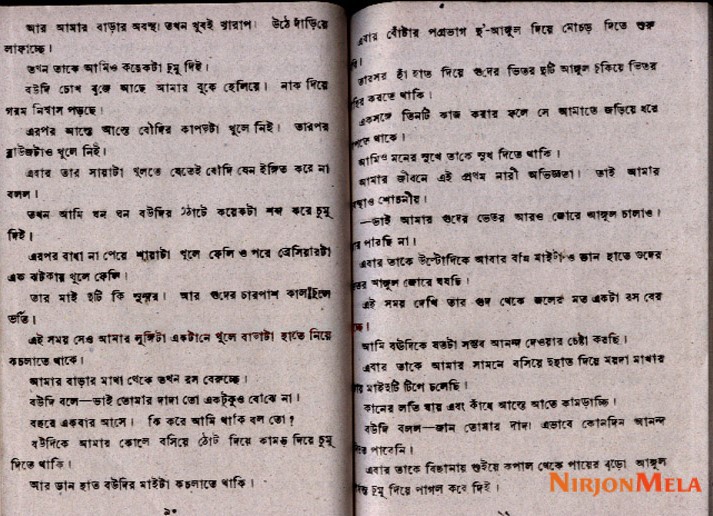 আর আমার বাড়ার অবস্থা তখন খুবই খারাপ। উঠে দাঁড়িয়ে
লাফাচ্ছে।
তখন তাকে আমিও কয়েকটা চুমু দিই।
বউদি চোখ বুজে আছে আমার বুকে হেলিয়ে। নাক দিয়ে
গরম নিশ্বাস পড়ছে।
এরপর আস্তে আস্তে বৌদির কাপড়টা খুলে নিই। তারপর
ব্লাউজটাও খুলে নিই।
এবার তার সায়াটা খুলতে যেতেই বৌদি যেন ইঙ্গিত করে না
বলল।
তখন আমি ঘন ঘন বউদির ঠোটে কয়েকটা শব্দ করে চুমু
দিই।
এরপর বাধা না পেয়ে শায়াটা খুলে ফেলি ও পরে ব্রেসিয়ারটা
এক ঝটকায় খুলে ফেলি।
তার মাই দুটি কি সুন্দর। আর গুদের চারপাশ কাল চুলে
ভর্তি।
এই সময় সেও আমার লুঙ্গিটা একটানে খুলে বাড়াটা হাতে নিয়ে
কচলাতে থাকে।
আমার বাড়ার মাথা থেকে তখন রস বেরুচ্ছে।
বউদি বলে—ভাই তোমার দাদা তো একটুকুও বোঝে না।
বছরে একবার আসে। কি করে আমি থাকি বল তো?
বউদিকে আমার কোলে বসিয়ে ঠোট দিয়ে কামড় দিয়ে চুমু
দিতে থাকি।
আর ডান হাত বউদির মাইটা কচলাতে থাকি।
৯০
এবার বোঁটার অগ্রভাগ দু'-আঙ্গুল দিয়ে মোচড় দিতে শুরু
তারপর হাত দিয়ে গুদের ভিতর দুটি আঙ্গুল ঢুকিয়ে ভিতর
করতে থাকি।
একসঙ্গে তিনটি কাজ করার ফলে সে আমাকে জড়িয়ে ধরে
থাকে।
আমিও মনের সুখে তাকে সুখ দিতে থাকি।
আমার জীবনে এই প্রথম নারী অভিজ্ঞতা। তাই আমার
শোচনীয়।
—ভাই আমার গুদের ভেতর আরও জোরে আঙ্গুল চালাও।
পারছি না।
এবার তাকে উল্টোদিকে আবার বাম মাইটা ও ডান হাতে গুদের
আঙ্গুল জোরে ঘষছি।
এই সময় দেখি তার গুদ থেকে জলের মত একটা রস বের
আমি বউদিকে যতটা সম্ভব আনন্দ দেওয়ার চেষ্টা করছি।
এবার তাকে আমার সামনে বসিয়ে দুহাত দিয়ে ময়দা মাখার
মাইদুটি টিপে চলেছি।
কানের লতি খায় এবং কাঁধে আস্তে আস্তে কামড়াচ্ছি।
বউদি বলল—জান তোমার দাদা এভাবে কোনদিন আনন্দ
পারেনি।
এবার তাকে বিছানায় শুইয়ে কপাল থেকে পায়ের বুড়ো আঙ্গুল
চুমু দিয়ে পাগল করে দিই।
NIRJONMELA